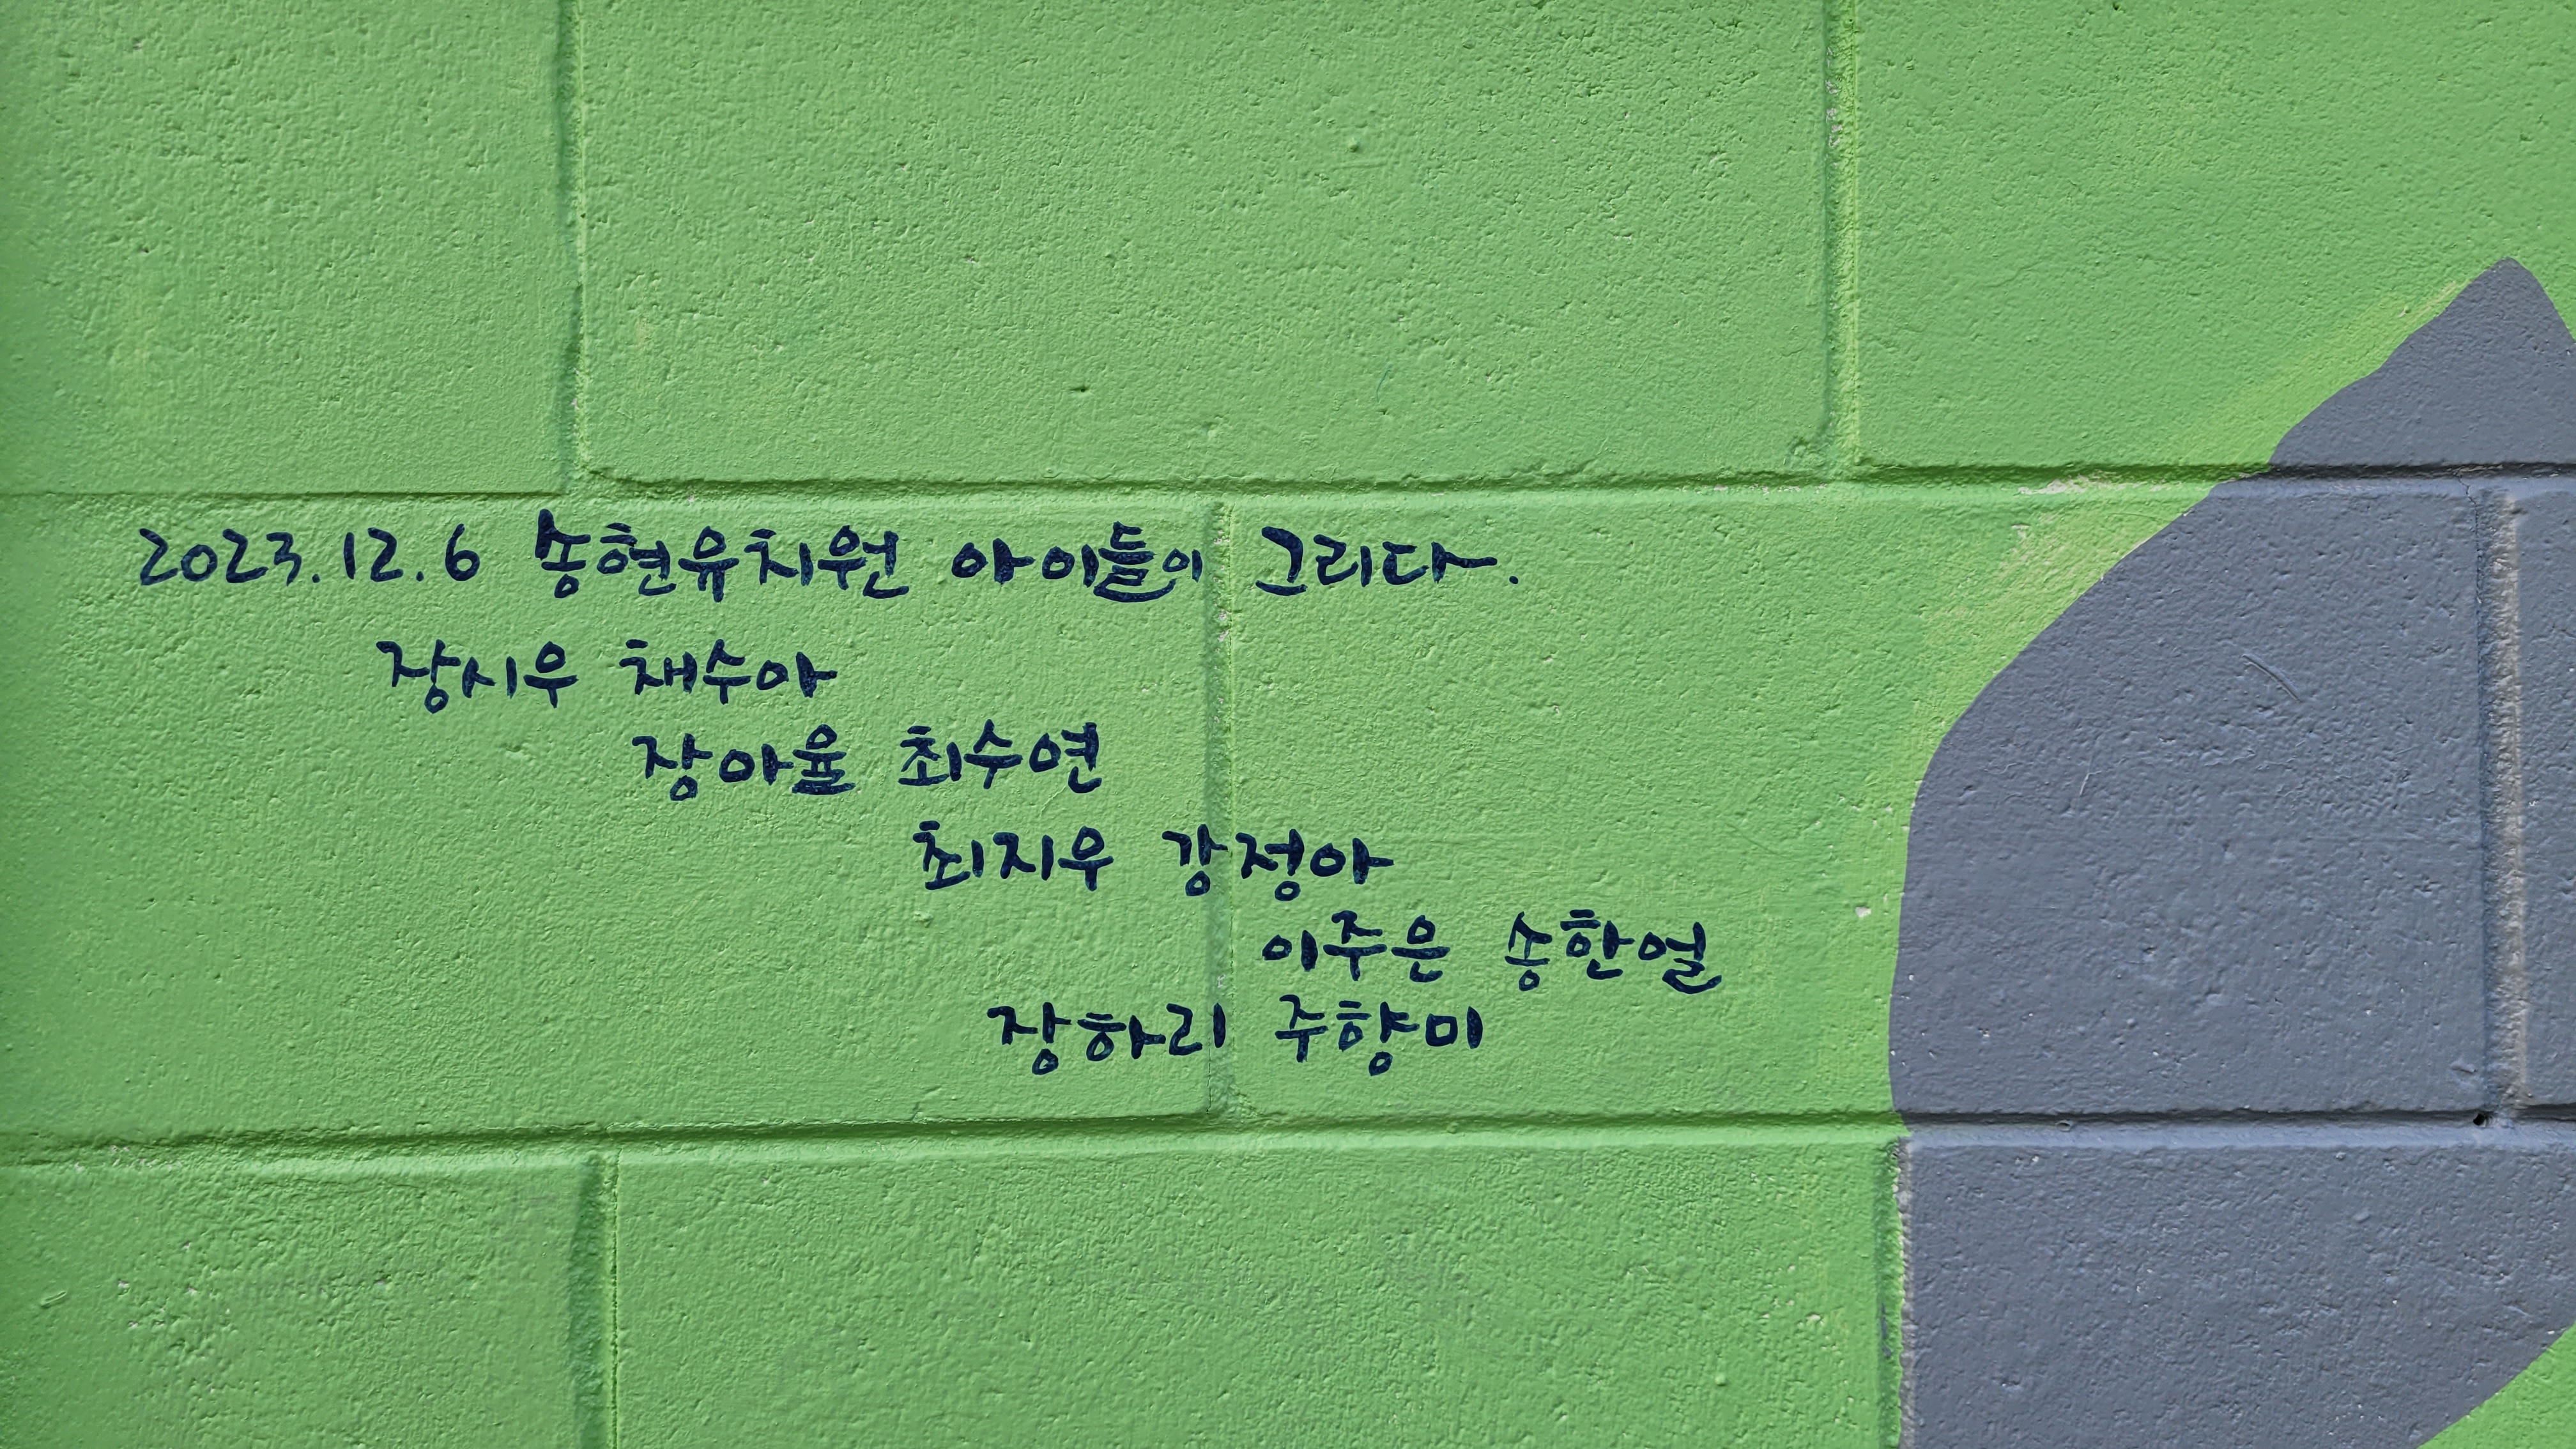 2023.12.6 송현유치원 아이들이 그리다.
장시우 채수아
장아율 최수연
최지우 강정아
이주은 송한얼
장하리 주향미